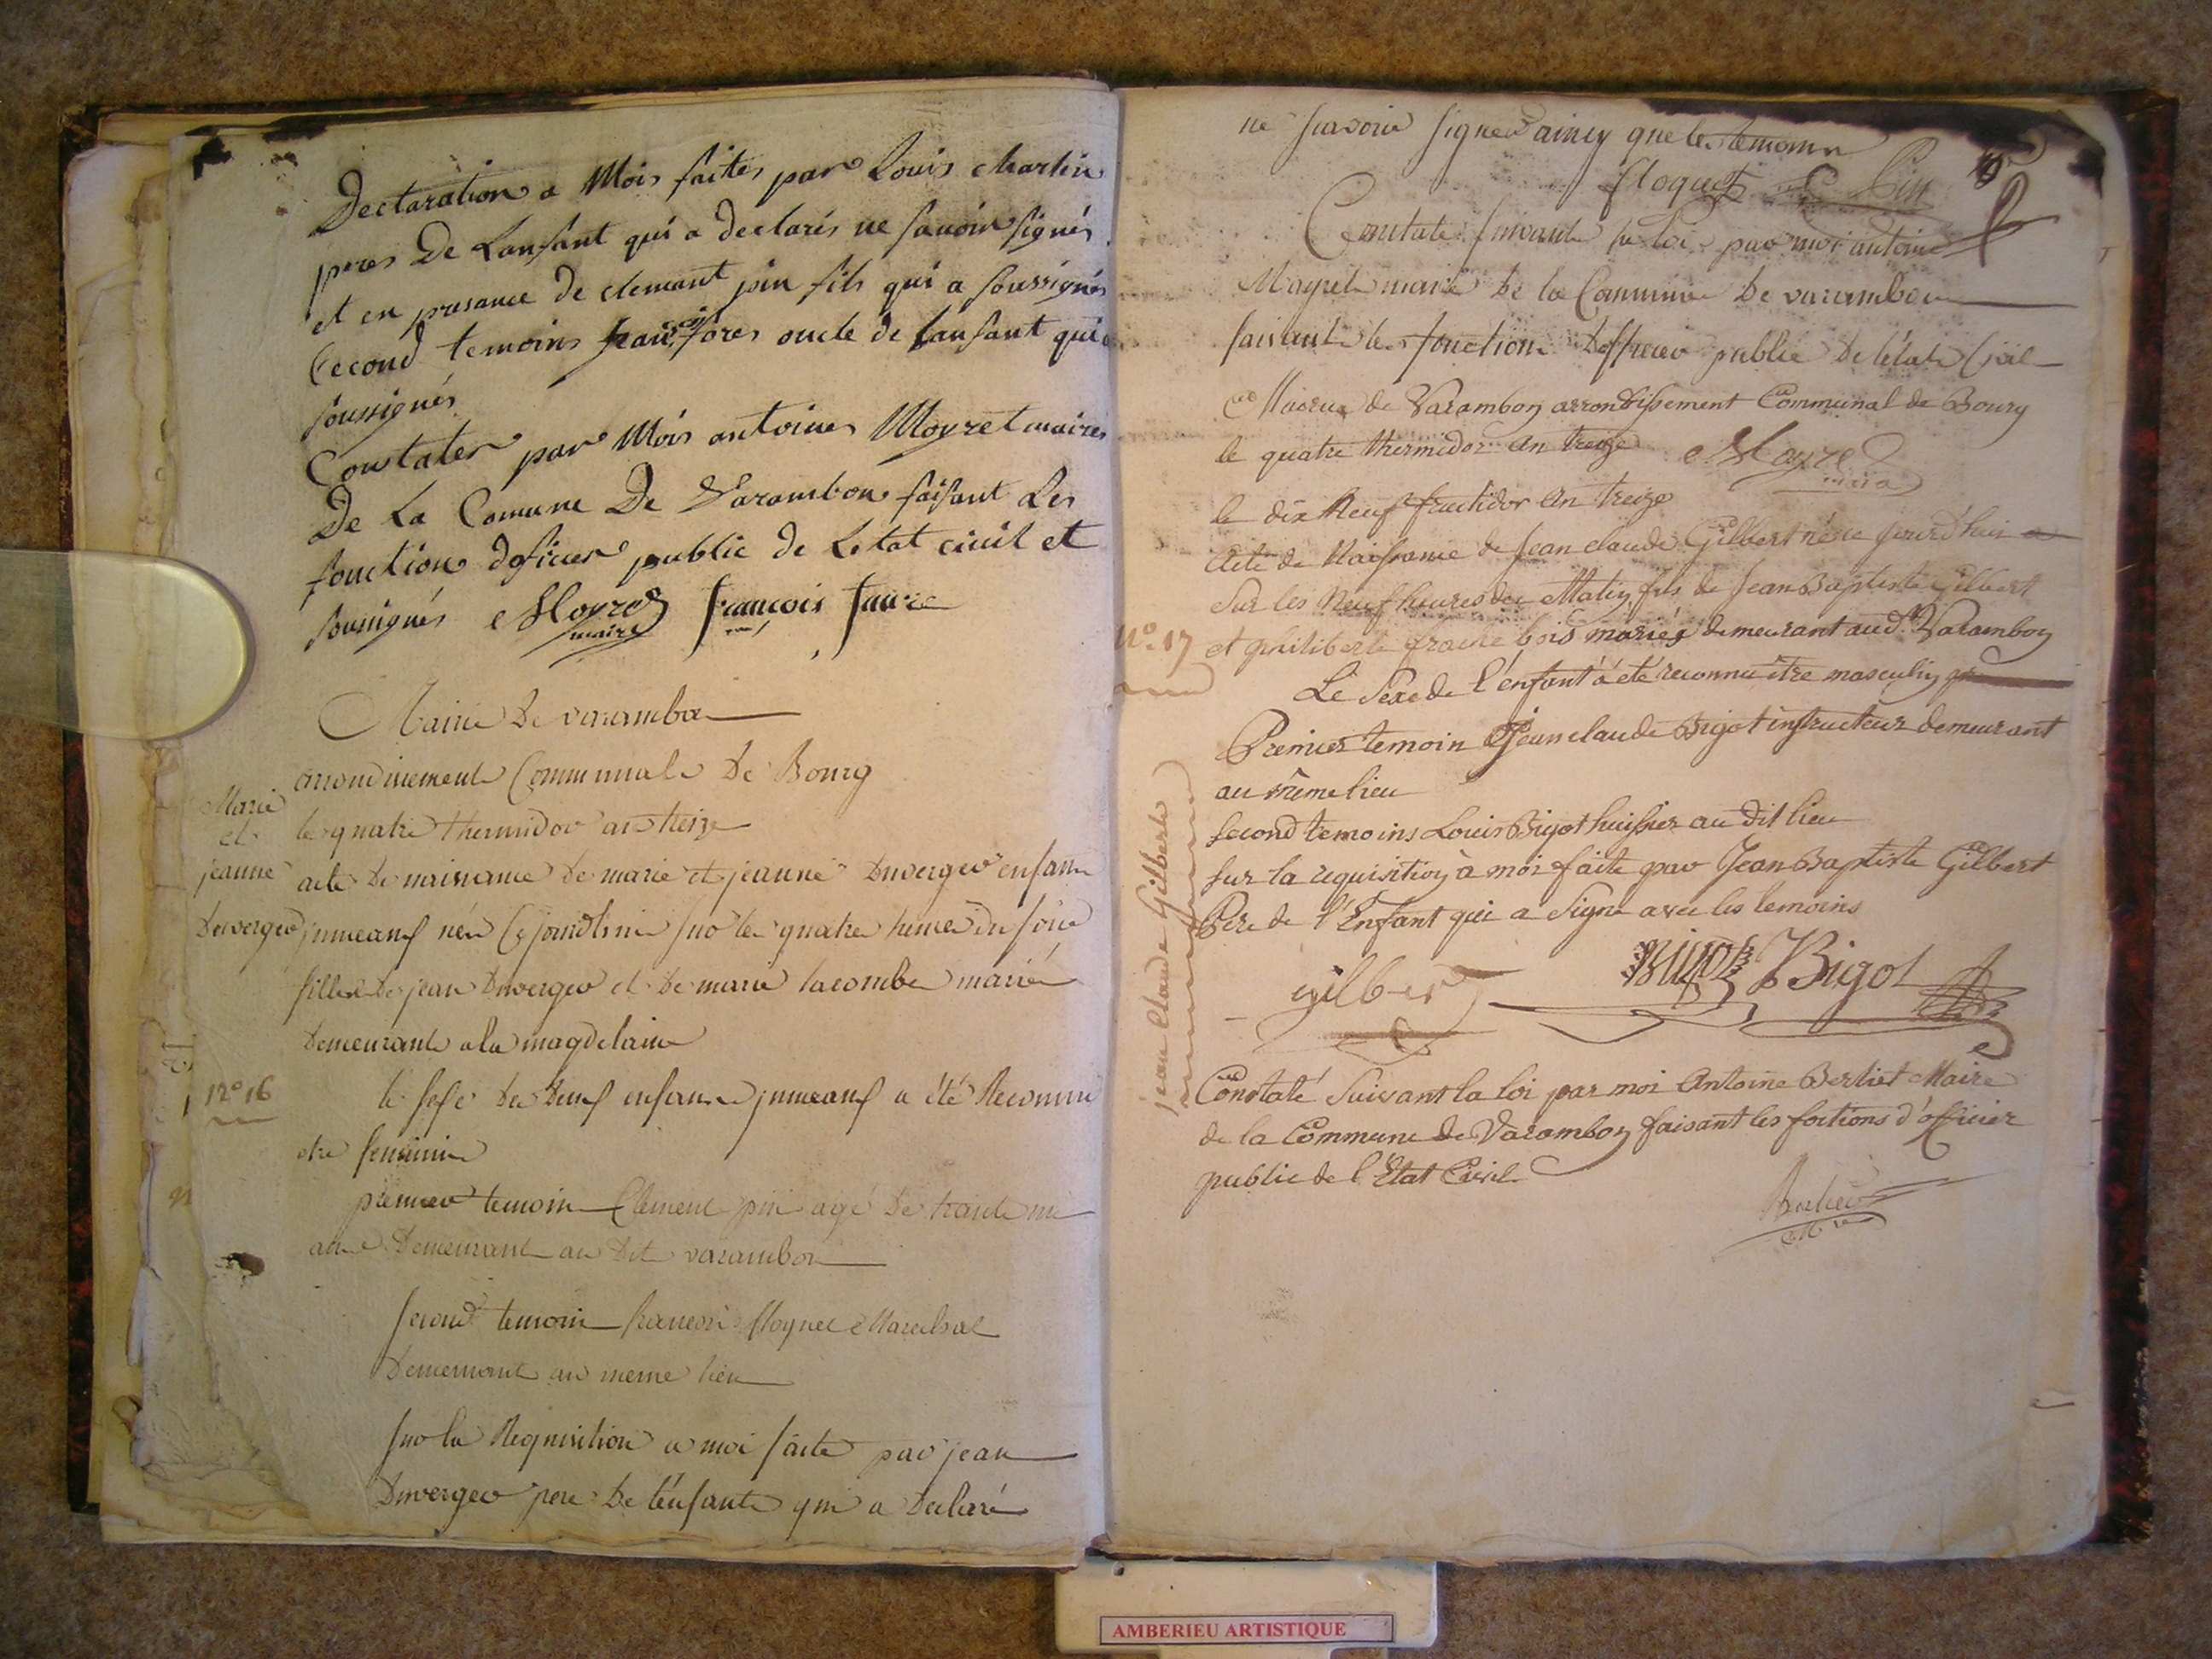 Declaration a Mois faites par Louis Martin
peres De Lanfant qui a declarés ne sauoir signés
et en presance de clemant pin fils qui a soussignés
Second temoins françois fores oncle de lanfant qui a
soussignés
Constater par Mois antoines Moyret maires
De La Comune De Varambon faisant Les
fonction doficier public de Letat ciuil et
sousignés Moyret françois faure
maire
Mairie De varambon
arrondissement Communal De Bourg
le quatre thermidor an treize
Marie
et
jeanne
Duverger
acte de naissance de marie et jeanne Duverger enfans
jumeaux née Cejourdhui sur les quatre heures du soir
filles De jean Duverger et De marie lacombe mariés
Demeurant a la magdelaine
N° 16
le sexe Des Deux enfans jumeaux a été Reconnu
etre feminin
premier temoin Clement pin agé De trente un
ans Demeurant au Dit varambon
second temoin francois floquet Marechal
Demeurant au meme lieu
sur la Requisition a moi faite par jean
Duverger pere De l'enfant qui a Declaré
ne savoir signer ainsy que le temoin
floquet Pin
Constaté suivant la loi par moi antoine
Mayret maire De la Commune De varambon
faisant les fonction D'officier public De l'état Civil
Mairie de Varambon arrondissement Communal de Bourg
le quatre thermidor an treize Moyret
maire
le dix Neuf fructidor An treize
Acte de Naissance de Jean claude Gilbert né ce jourd'hui
Sur les Neuf heures du Matin fils de Jean Baptiste Gilbert
N°. 17
et philiberte frache bois mariés demeurant aud.t Varambon
Le Sexe de l'enfant a été reconnu être masculin
Premier temoin Jean claude Bigot instructeur demeurant
au même lieu
second temoins Louis Bigot huissier au dit lieu
sur la requisition à moi faite par Jean Baptiste Gilbert
Pere de l'Enfant qui a Signé avec les temoins
jean Claude Gilberte
gilber Bigot Bigot
Constaté Suivant la loi par moi Antoine Berliet Maire
de la Commune de Varambon faisant les foctions d'officier
public de l'Etat Civil
AMBERIEU ARTISTIQUE